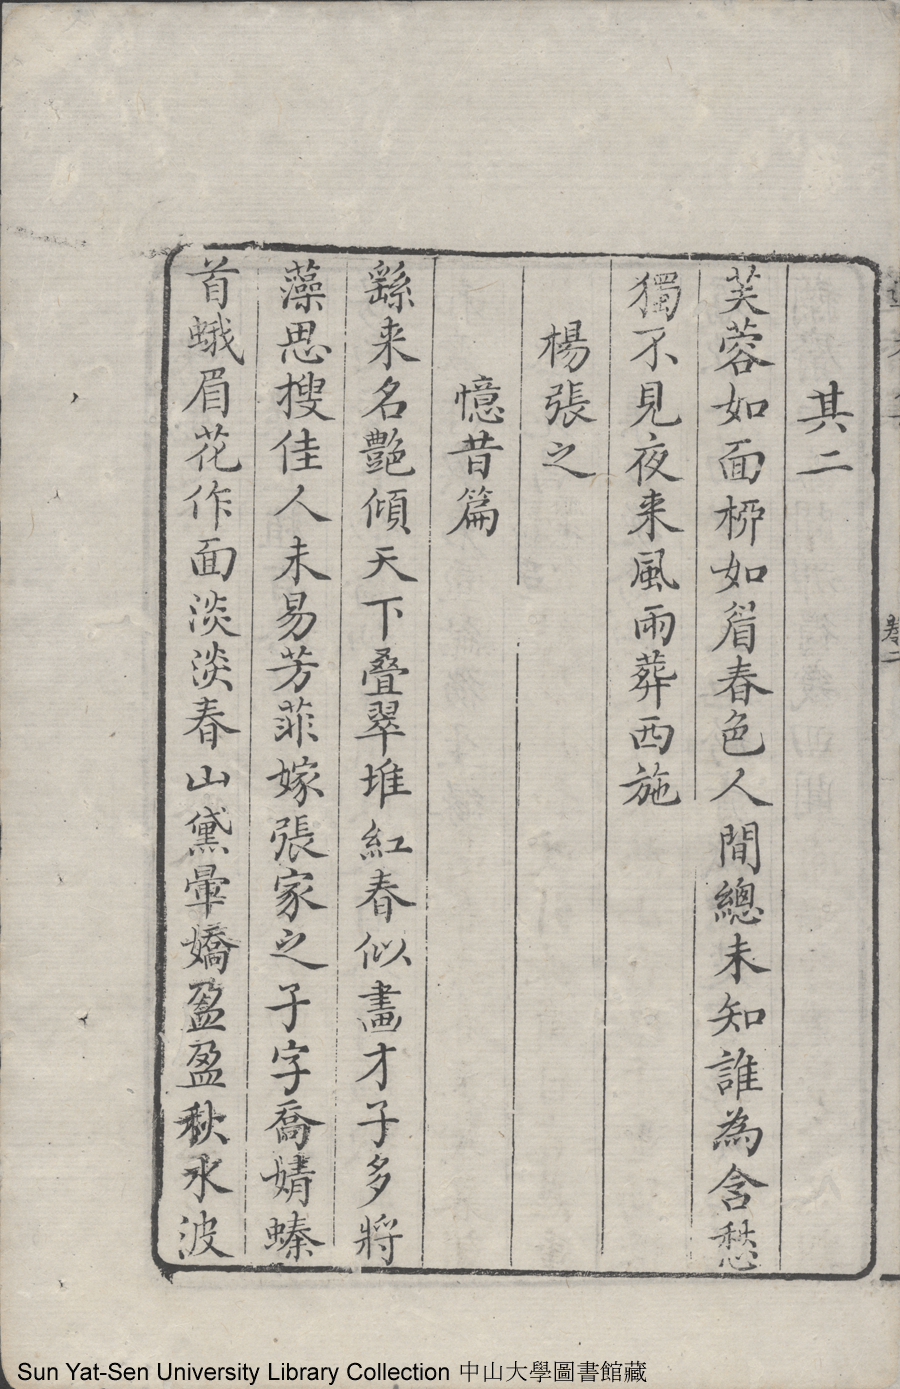 卷二
其二
芙蓉如面桺如眉春色人間總未知誰為含愁
獨不見夜来風雨葬西施
楊張之
憶昔篇
繇来名艷傾天下疊翠堆紅春似畵才子多將
藻思搜佳人未易芳菲嫁張家之子字喬婧螓
首蛾眉花作面淡淡春山黛暈嬌盈盈秋水波
Sun Yat-Sen University Library Collection 中山大學圖書館藏